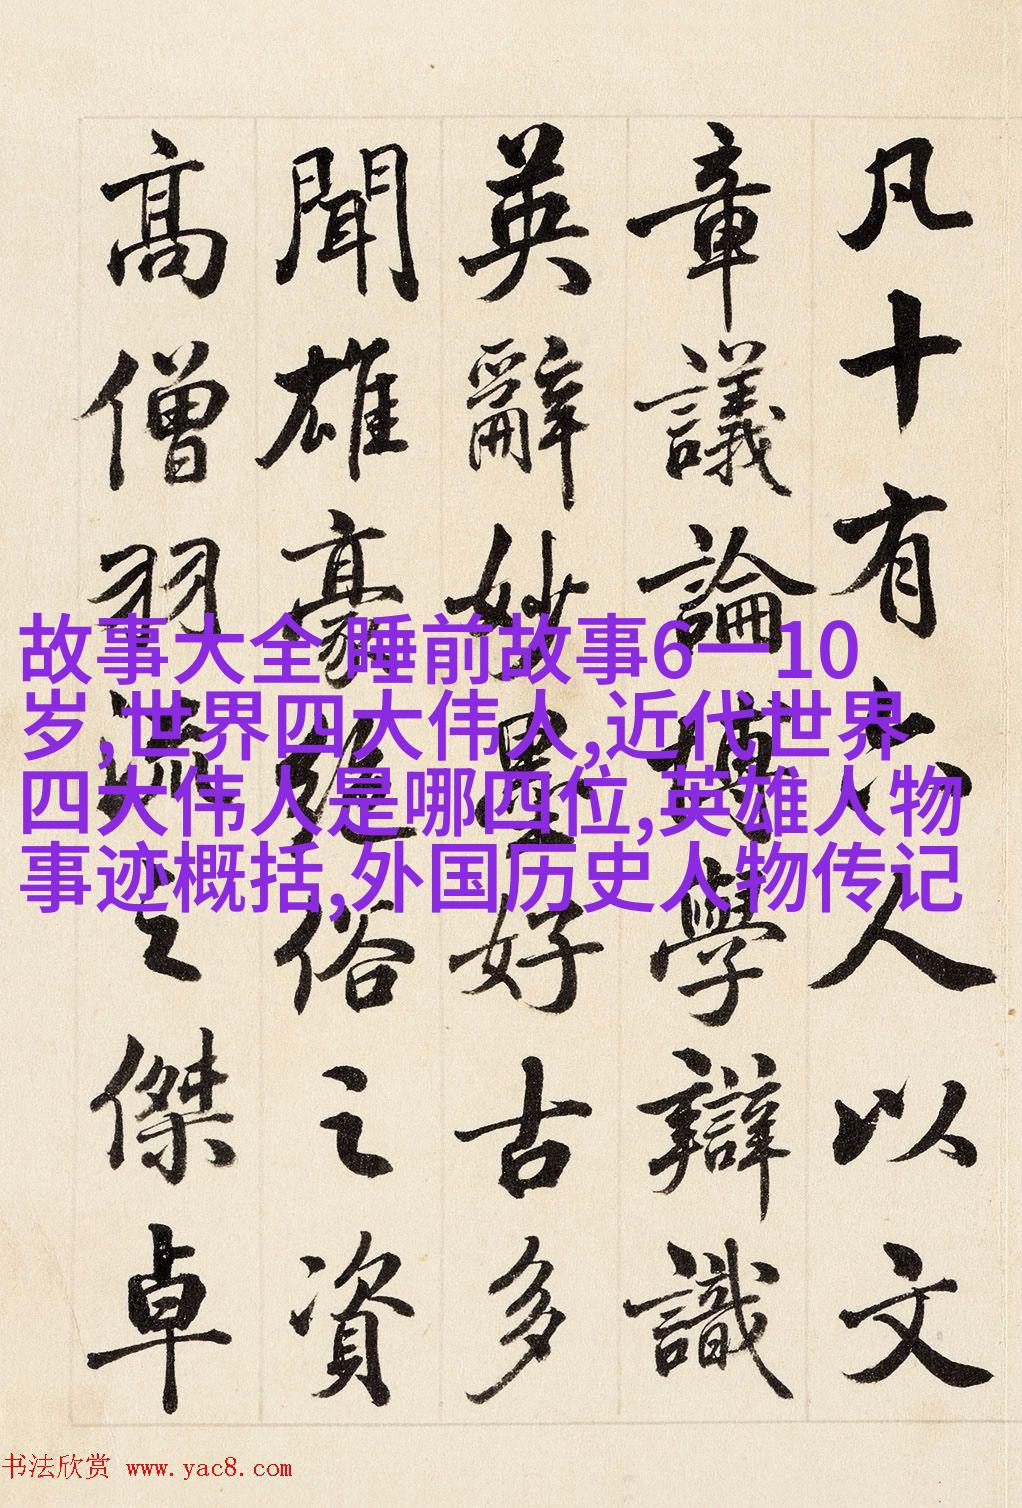 凡十有六人以文
章議論博學辯識
英辭妙墨好古多
聞雄豪絕俗之資
高僧羽流之傑卓
故事大全 睡前故事6一10
岁,世界四大伟人,近代世界
四大伟人是哪四位,英雄人物
事迹概括,外国历史人物传记
书法欣赏 www.yac8.com